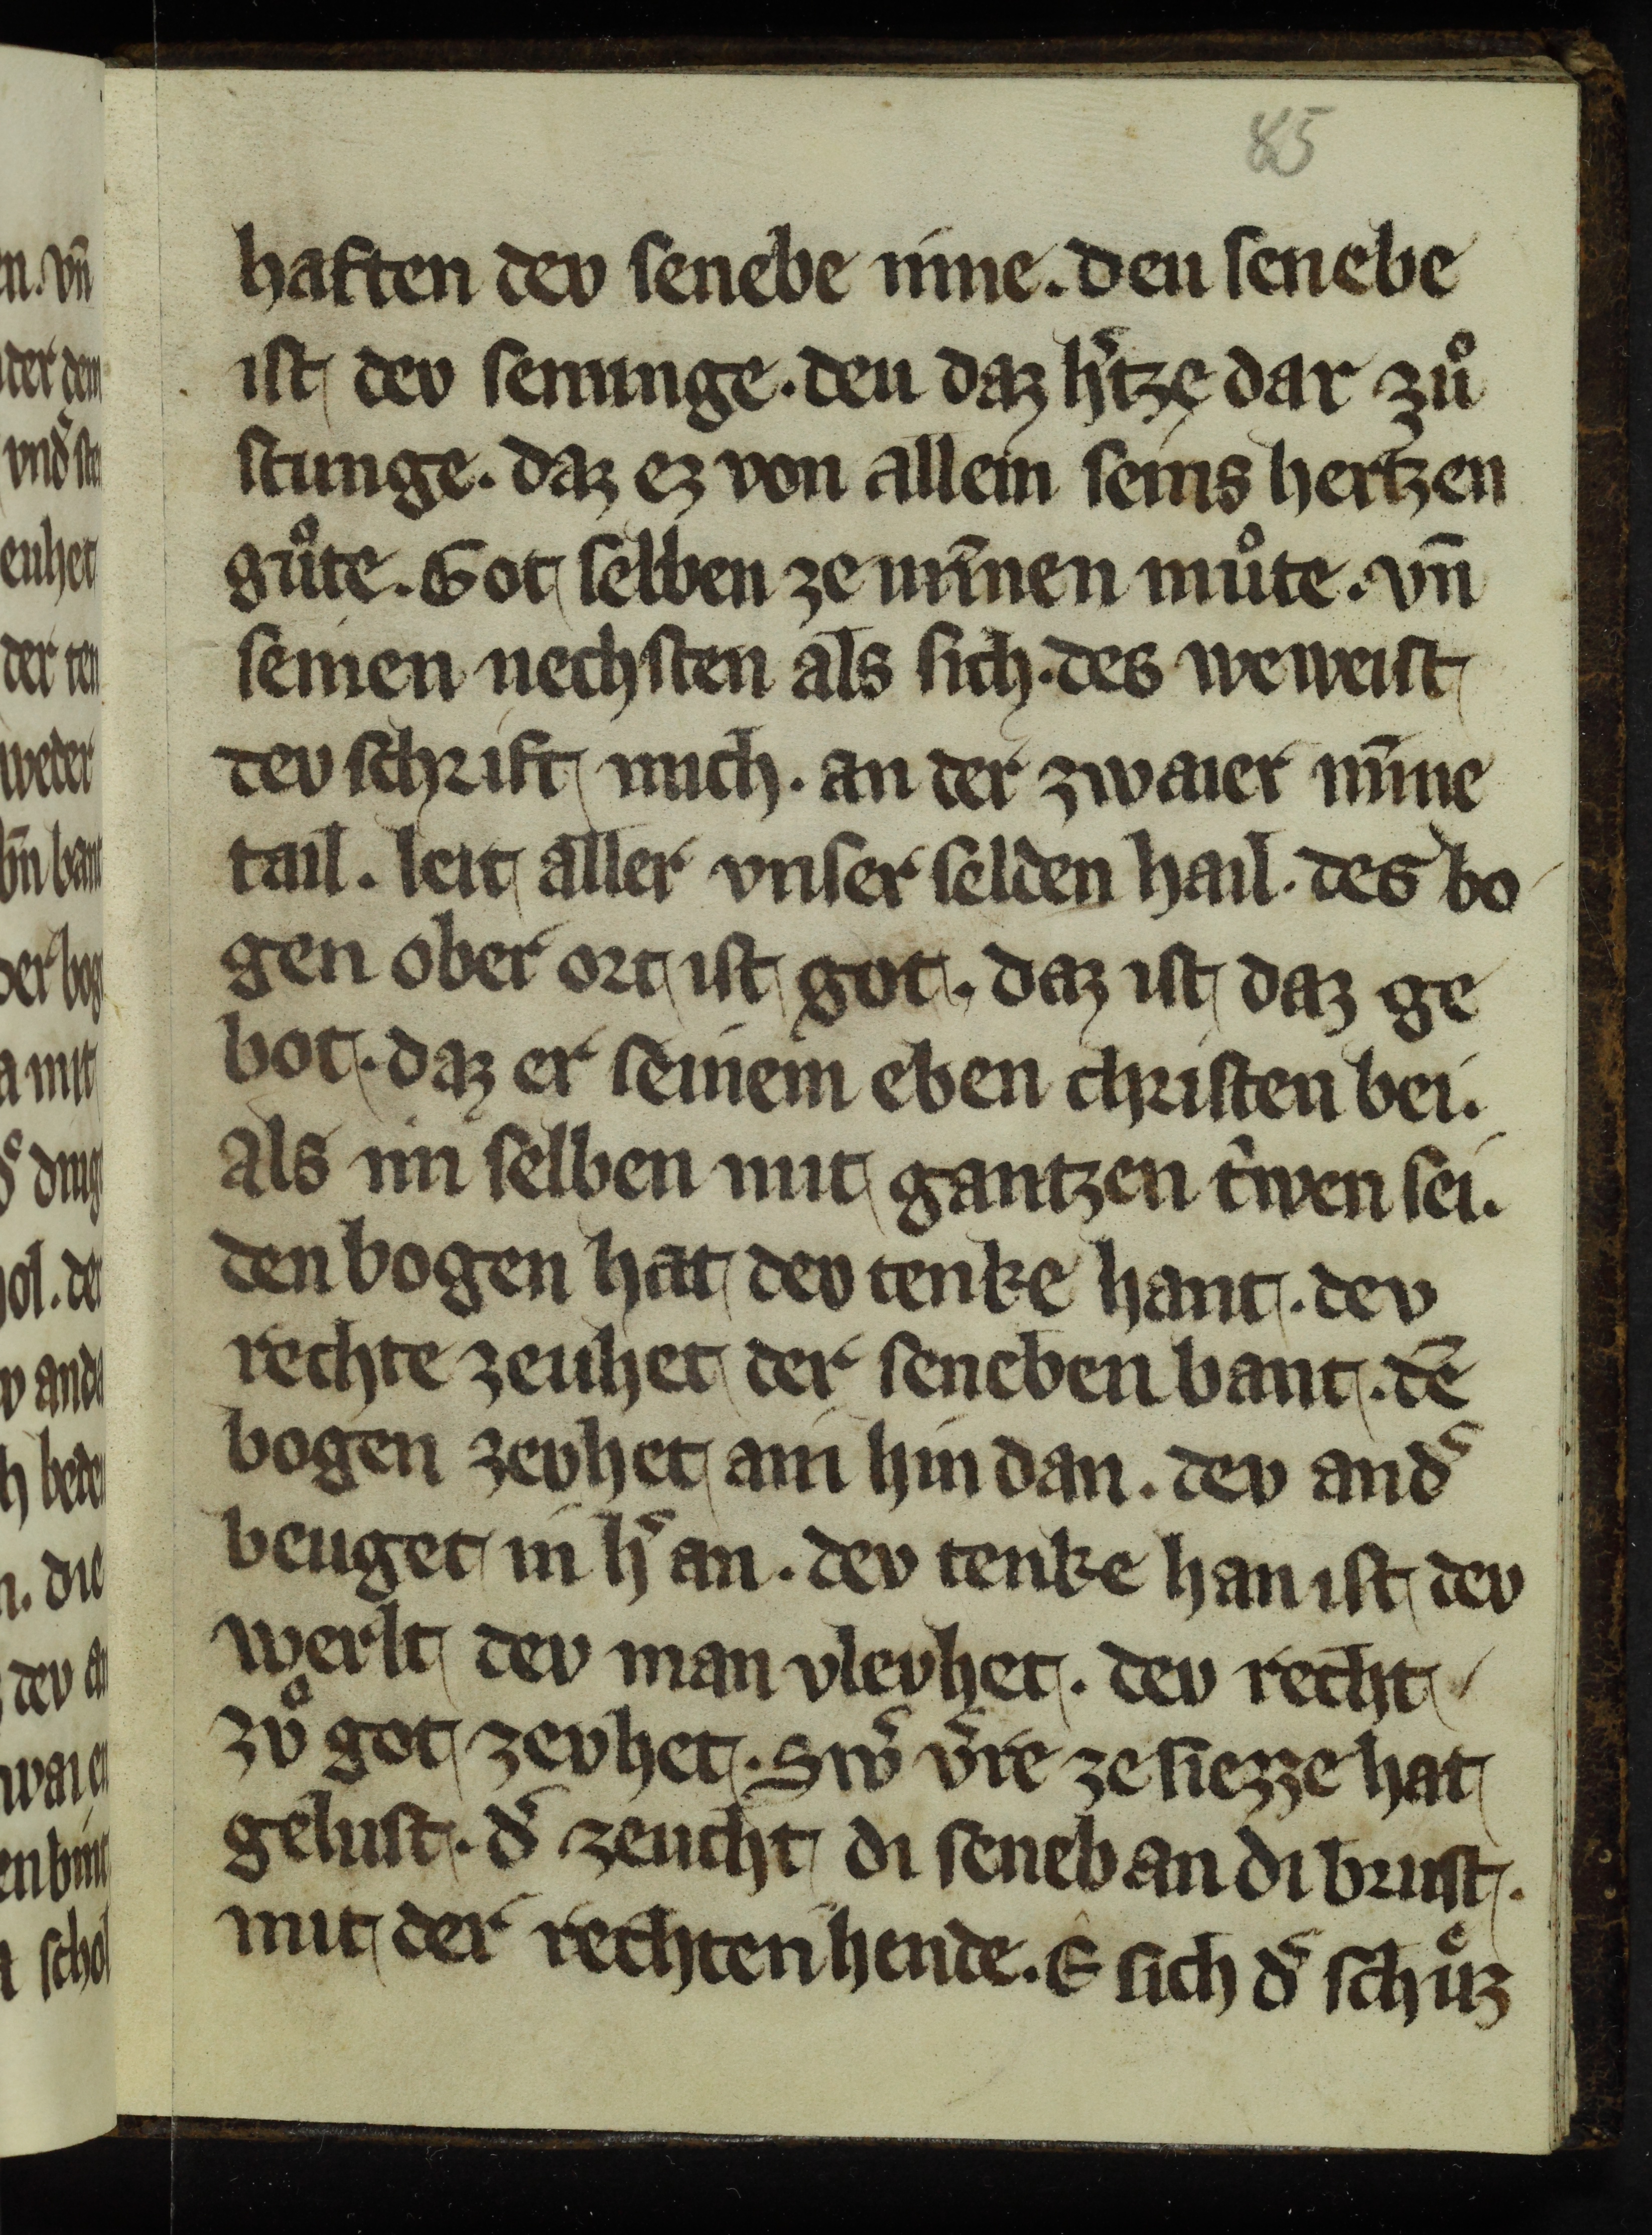 85
haften dev senebe inne. deu senebe
ist dev senunge. deu daz h͛tze dar zuͦ
stunge. daz ez von allem seins hertzen
guͦte. Got selben ze minnen muͦte. vn̄
seinen nechsten als sich. des weweist
dev schrift mich. an der zwaier minne
tail. leit aller vnser selden hail. des bo
gen ober ort ist got. daz ist daz ge
bot. daz er seinem eben christen bei.
Als im selben mit gantzen t͛wen sei.
den bogen hat dev tenke hant. dev
rechte zeuhet der seneben bant. dē
bogen zevhet ain hindan. dev and͛
beuget in h͛ an. dev tenke han ist dev
werlt dev man vlevhet. dev recht
zvͦ got zevhet. Sw͛ v͛re ze siezze hat
gelust. d͛ zeucht di seneb an di brust.
mit der rechten hende. E sich d͛ schuͤz